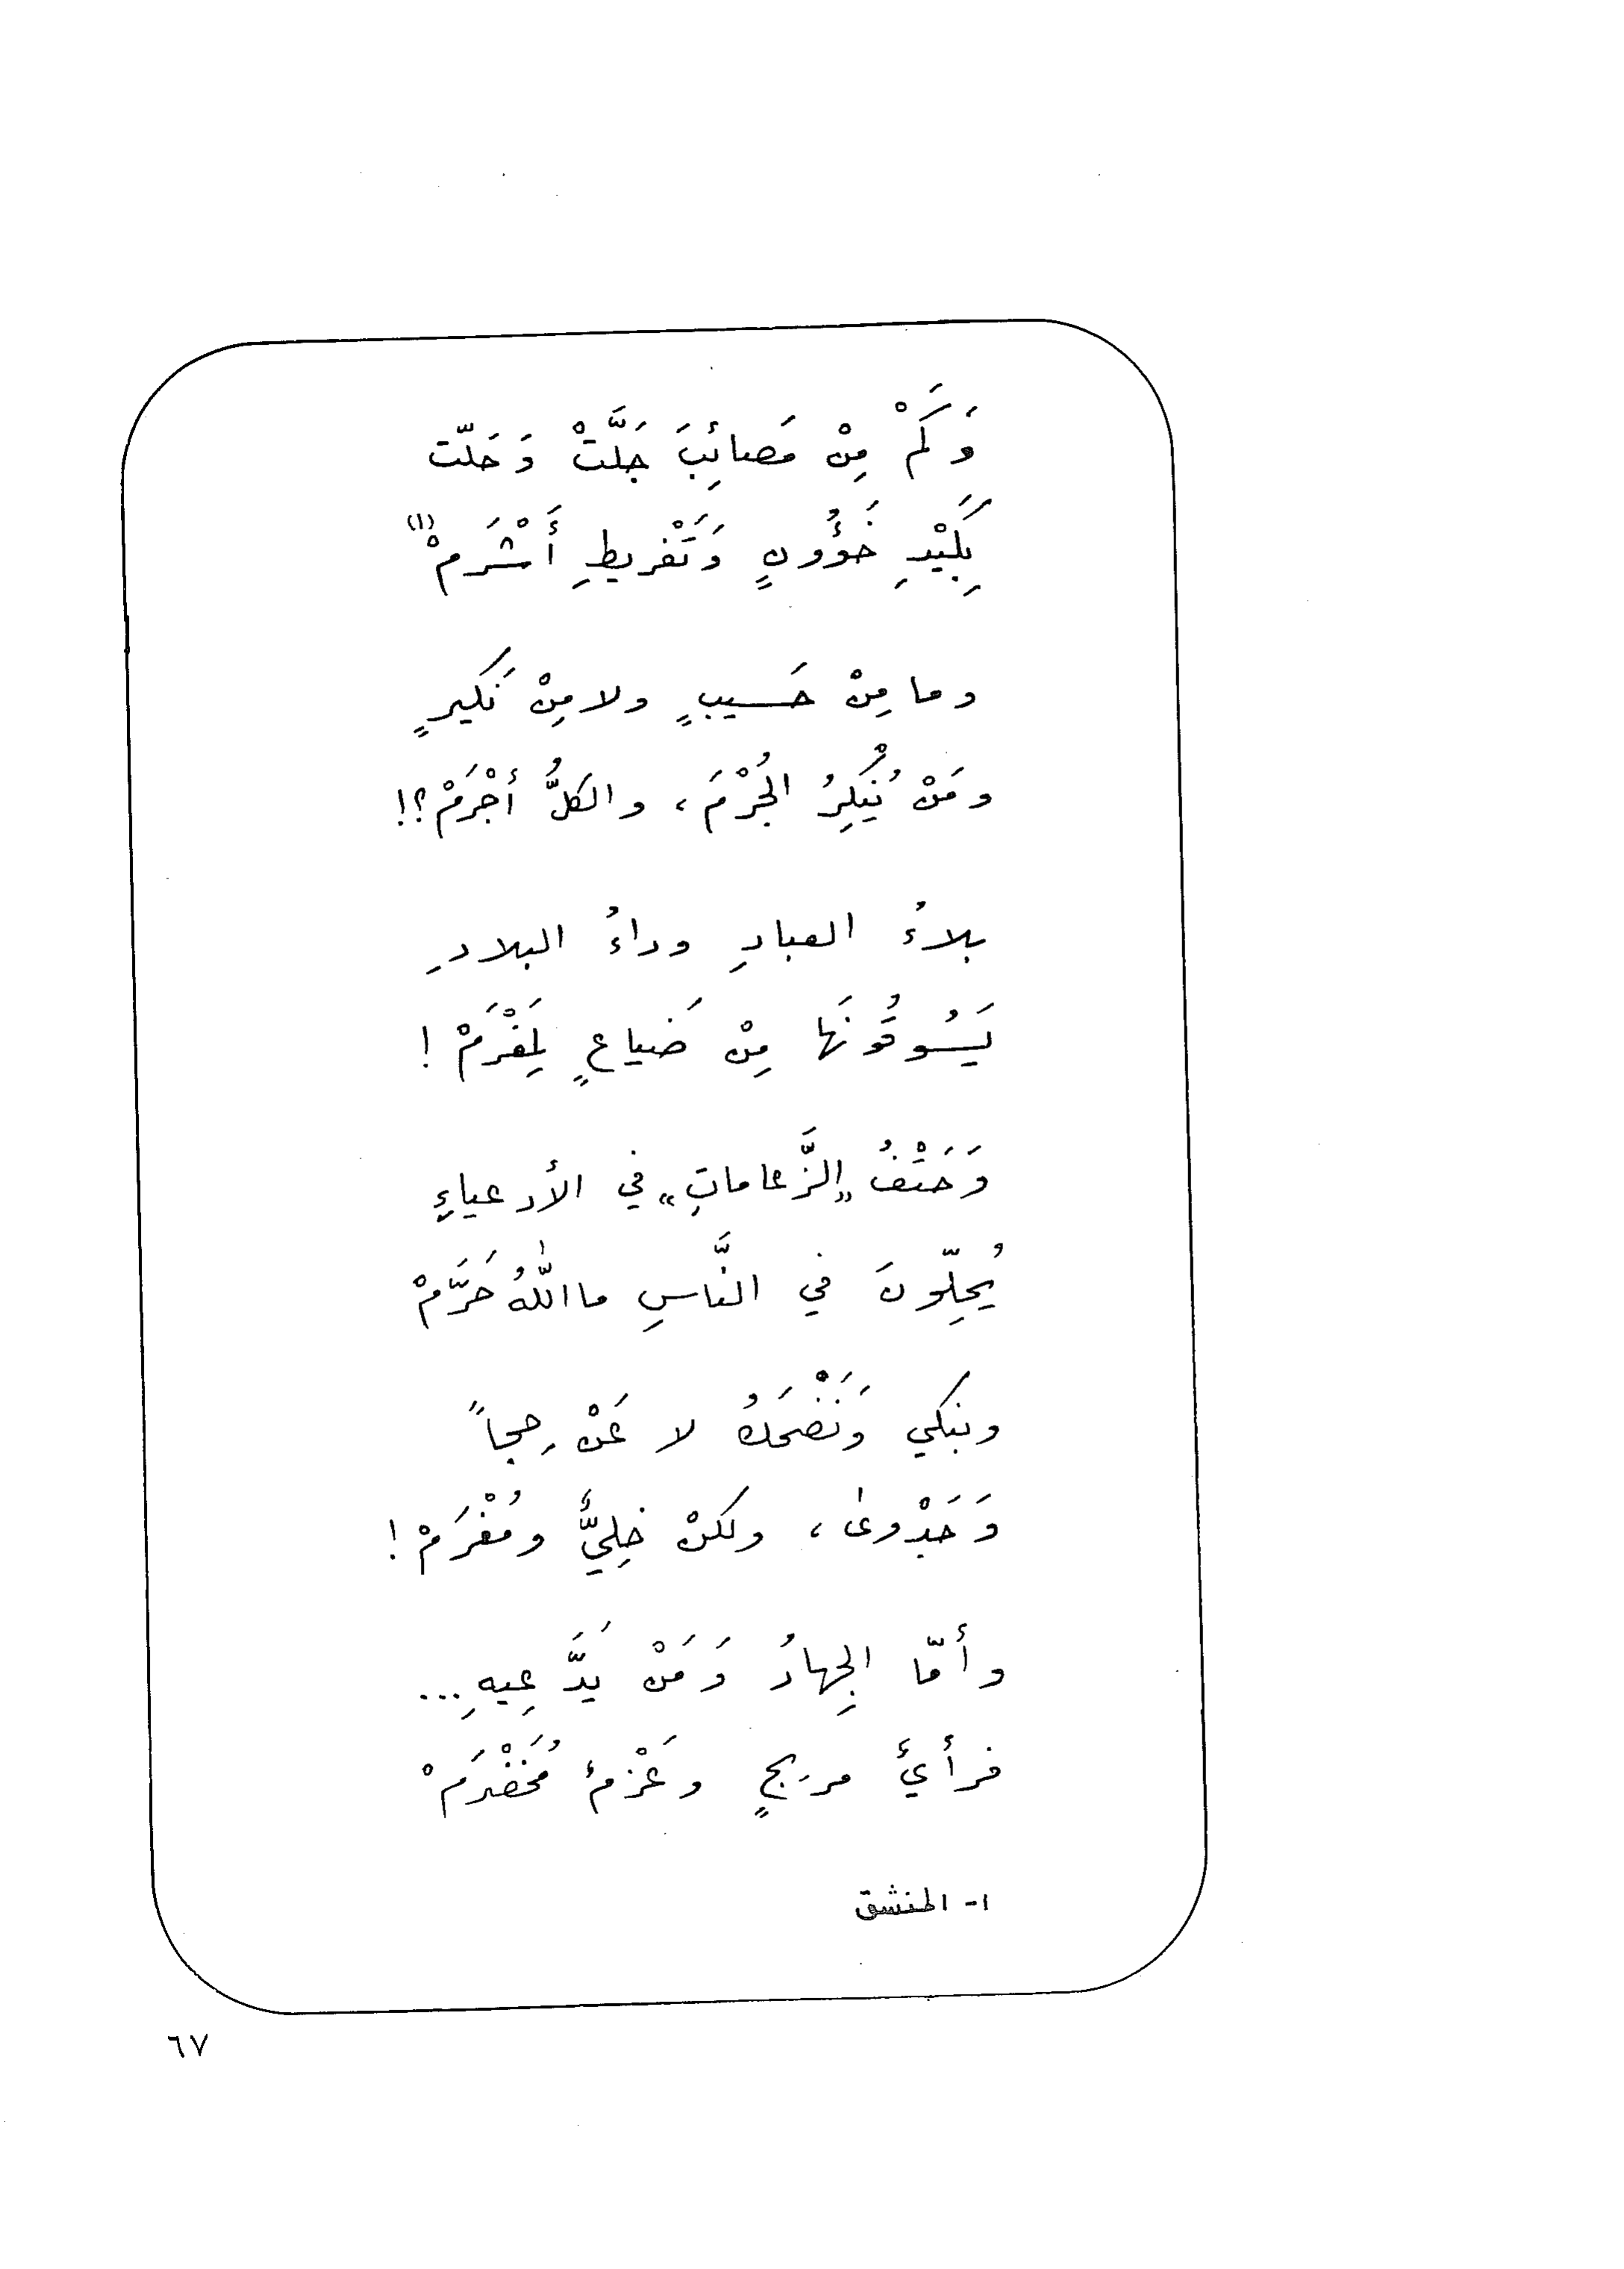 وَكَمْ مِنْ مَصائِبَ جَلَّتْ وَحَلّت
بِكَيْدِ خَؤُونٍ وَتَفْريطِ أَشْرَمْ (١)
وما مِنْ حَسيبٍ ولا مِنْ نَكيرٍ
ومَنْ يُنْكِرُ الجُرْمَ، والكلُّ أجْرَمْ؟!
بلاءُ العبادِ وداءُ البلادِ
يَسُوقُونَها مِنْ ضَياعٍ لِمَغْرَمْ!
وَحَتْفُ "الزَّعاماتِ" في الأدعياءِ
يُحِلّونَ في النَّاسِ ما اللهُ حَرَّمْ
ونبكي وَنَضْحَكُ لا عَنْ حِجاً
وَجَدْوىٰ، ولكنْ خِليٌّ ومُغْرَمْ!
وأمّا الجِهادُ وَمَنْ يَدَّعِيهِ...
فرأيُ مريجٍ وعَزْمُ مُخَضْرَمْ
١- المنشق
٦٧